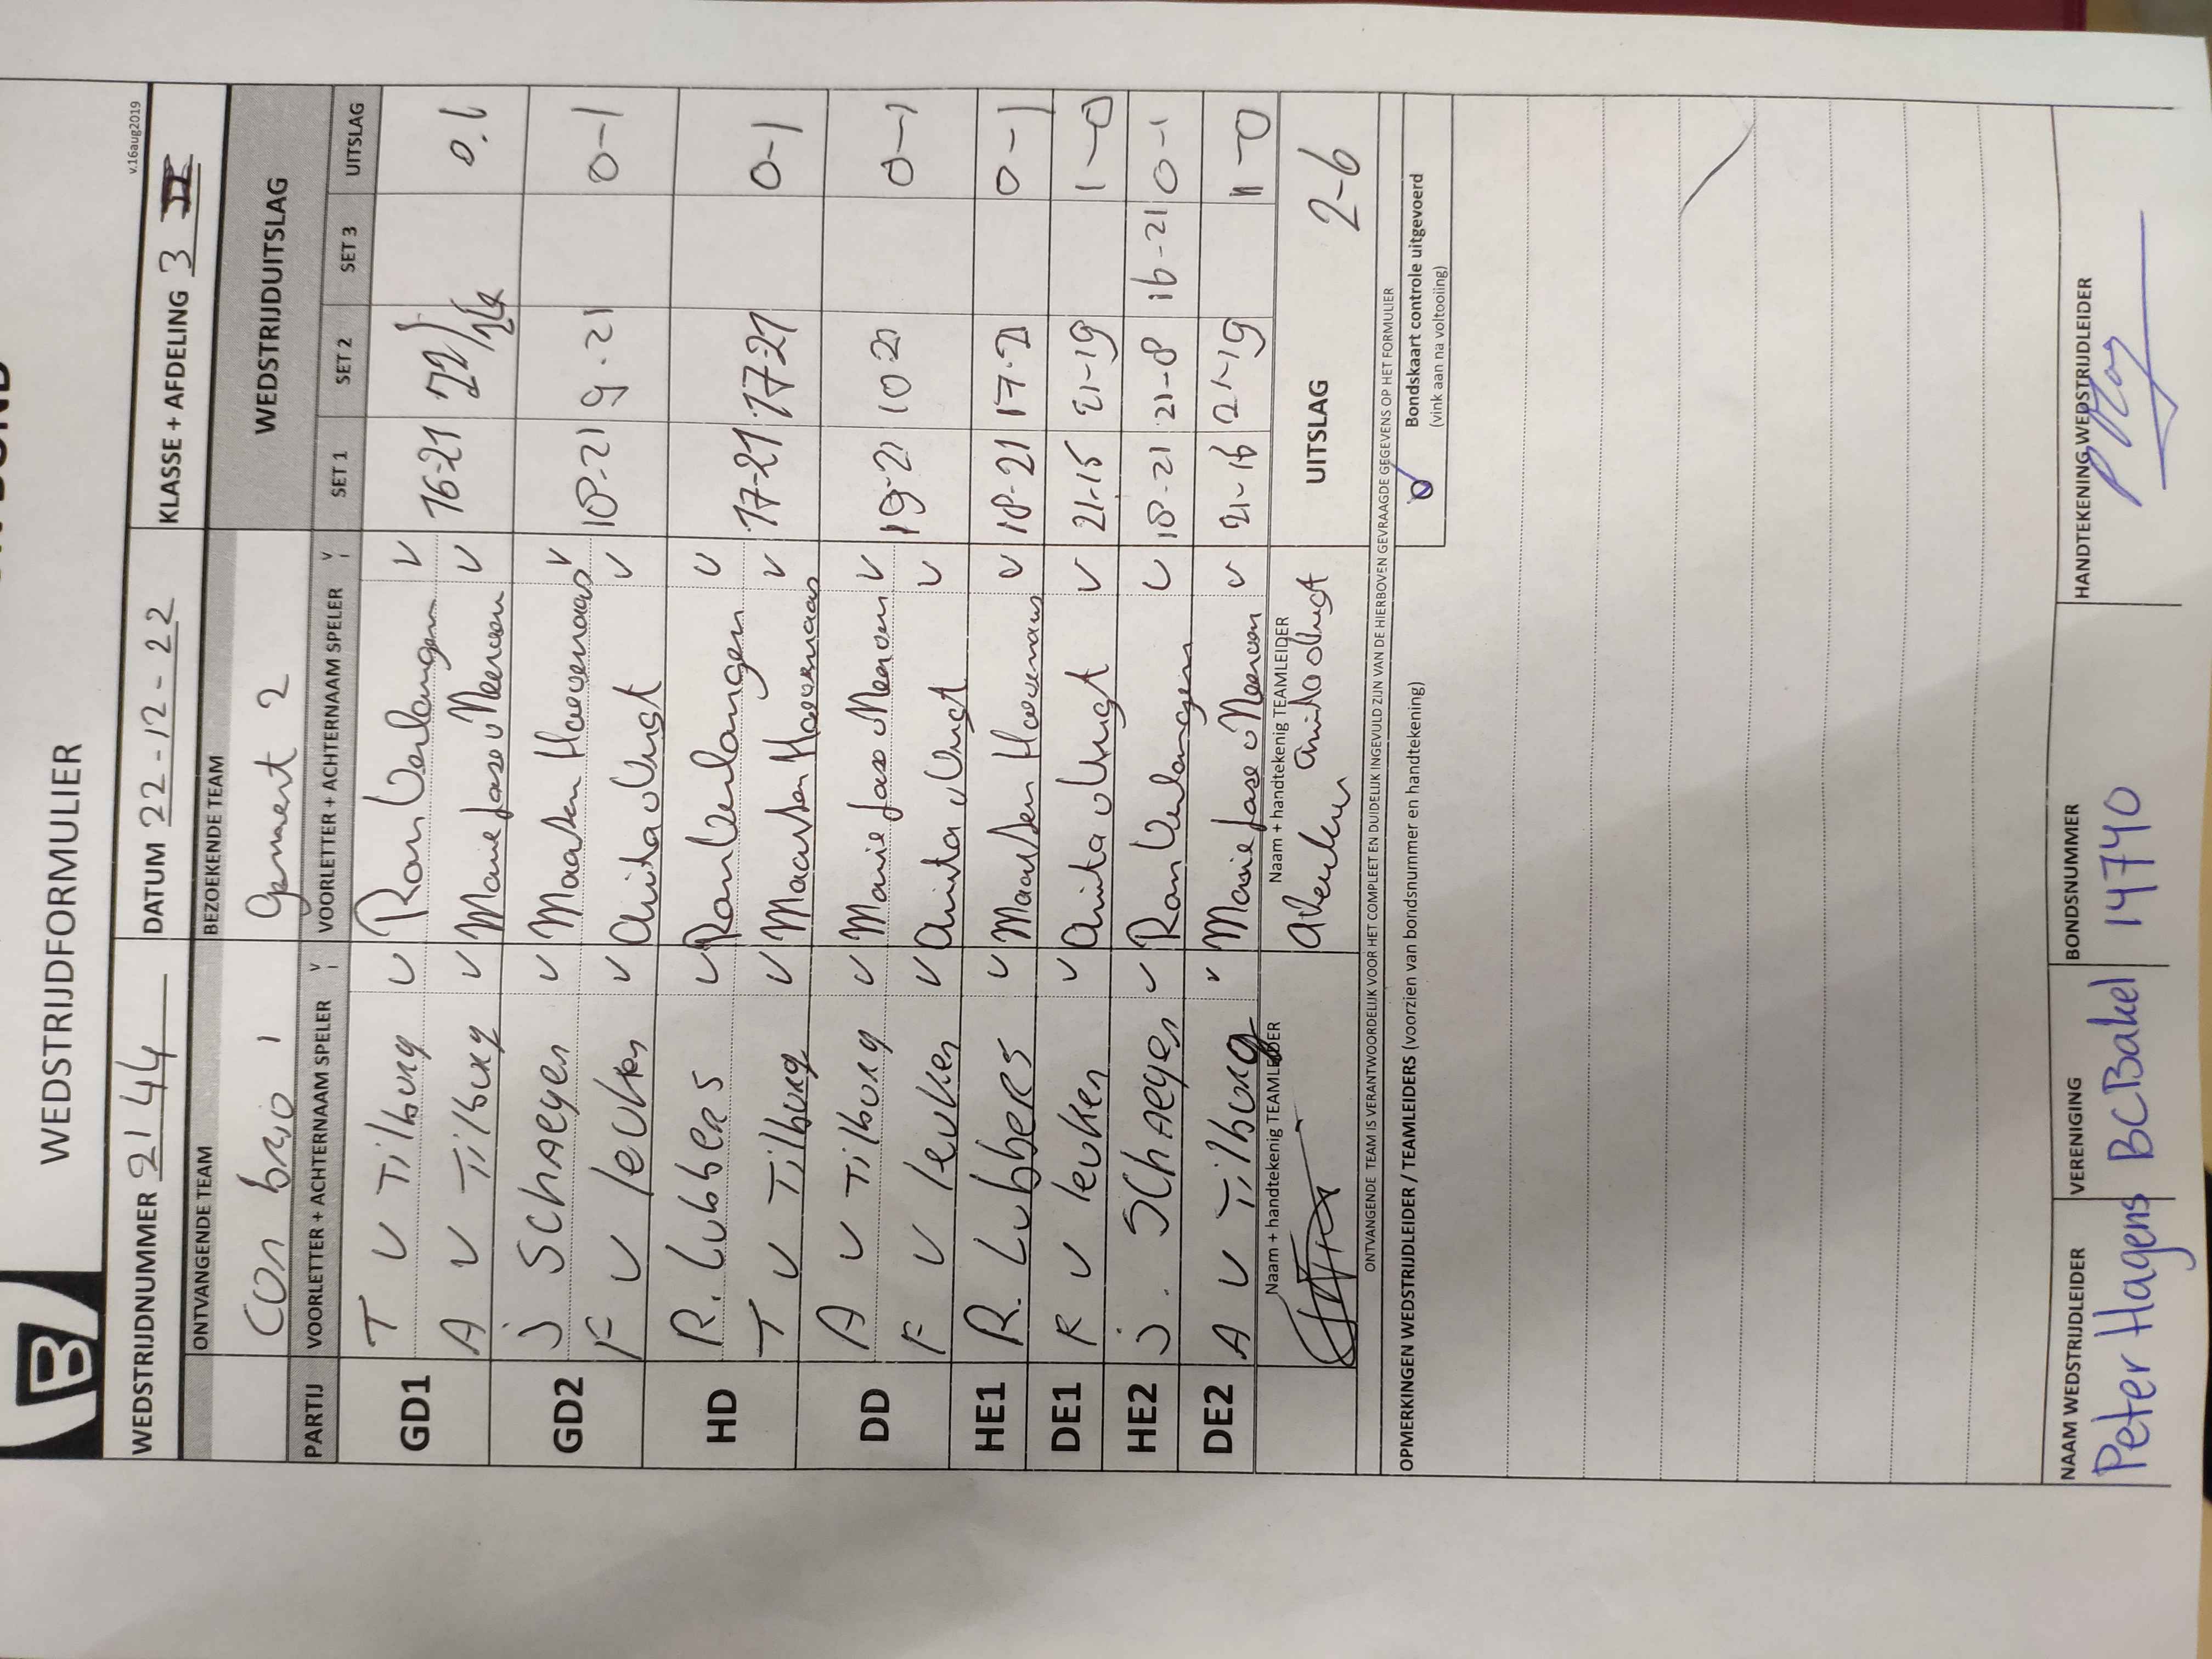 WEDSTRIJDFORMULIER
v.16aug2019
WEDSTRIJDNUMMER 2144 DATUM 22-12-22 KLASSE + AFDELING 3
ONTVANGENDE TEAM BEZOEKENDE TEAM WEDSTRIJDUITSLAG
Con brio 1 Gemert 2
PARTIJ VOORLETTER + ACHTERNAAM SPELER V VOORLETTER + ACHTERNAAM SPELER V SET 1 SET 2 SET 3 UITSLAG
GD1 T v Tilburg v Ron Verlangen v
A v Tilburg v Marie Jose v Meerven v 16-21 22/24 0.1
GD2 J Schaeyen v Maarten Hoevenaars v
F v leuken v Anita v Vugt v 18-21 9.21 0-1
HD R. Lubbers v Ron Verlangen v
T v Tilburg v Maarten Hoevenaars v 17-21 17-21 0-1
DD A v Tilburg v Marie Jose v Meerven v
F v leuken v Anita v Vugt v 19-21 10-21 0-1
HE1 R. Lubbers v Maarten Hoevenaars v 18-21 17-21 0-1
DE1 F v leuken v Anita v Vugt v 21-15 21-19 1-0
HE2 J. Schaeyen v Ron Verlangen v 18-21 21-8 16-21 0-1
DE2 A v Tilburg v Marie Jose v Meerven v 21-16 21-19 1-0
Naam + handtekenig TEAMLEIDER Naam + handtekenig TEAMLEIDER UITSLAG 2-6
Anita v Vugt
ONTVANGENDE TEAM IS VERANTWOORDELIJK VOOR HET COMPLEET EN DUIDELIJK INGEVULD ZIJN VAN DE HIERBOVEN GEVRAAGDE GEGEVENS OP HET FORMULIER
OPMERKINGEN WEDSTRIJDLEIDER / TEAMLEIDERS (voorzien van bondsnummer en handtekening) Bondskaart controle uitgevoerd
(vink aan na voltooiing)
NAAM WEDSTRIJDLEIDER VERENIGING BONDSNUMMER HANDTEKENING WEDSTRIJDLEIDER
Peter Hagens BC Bakel 14740